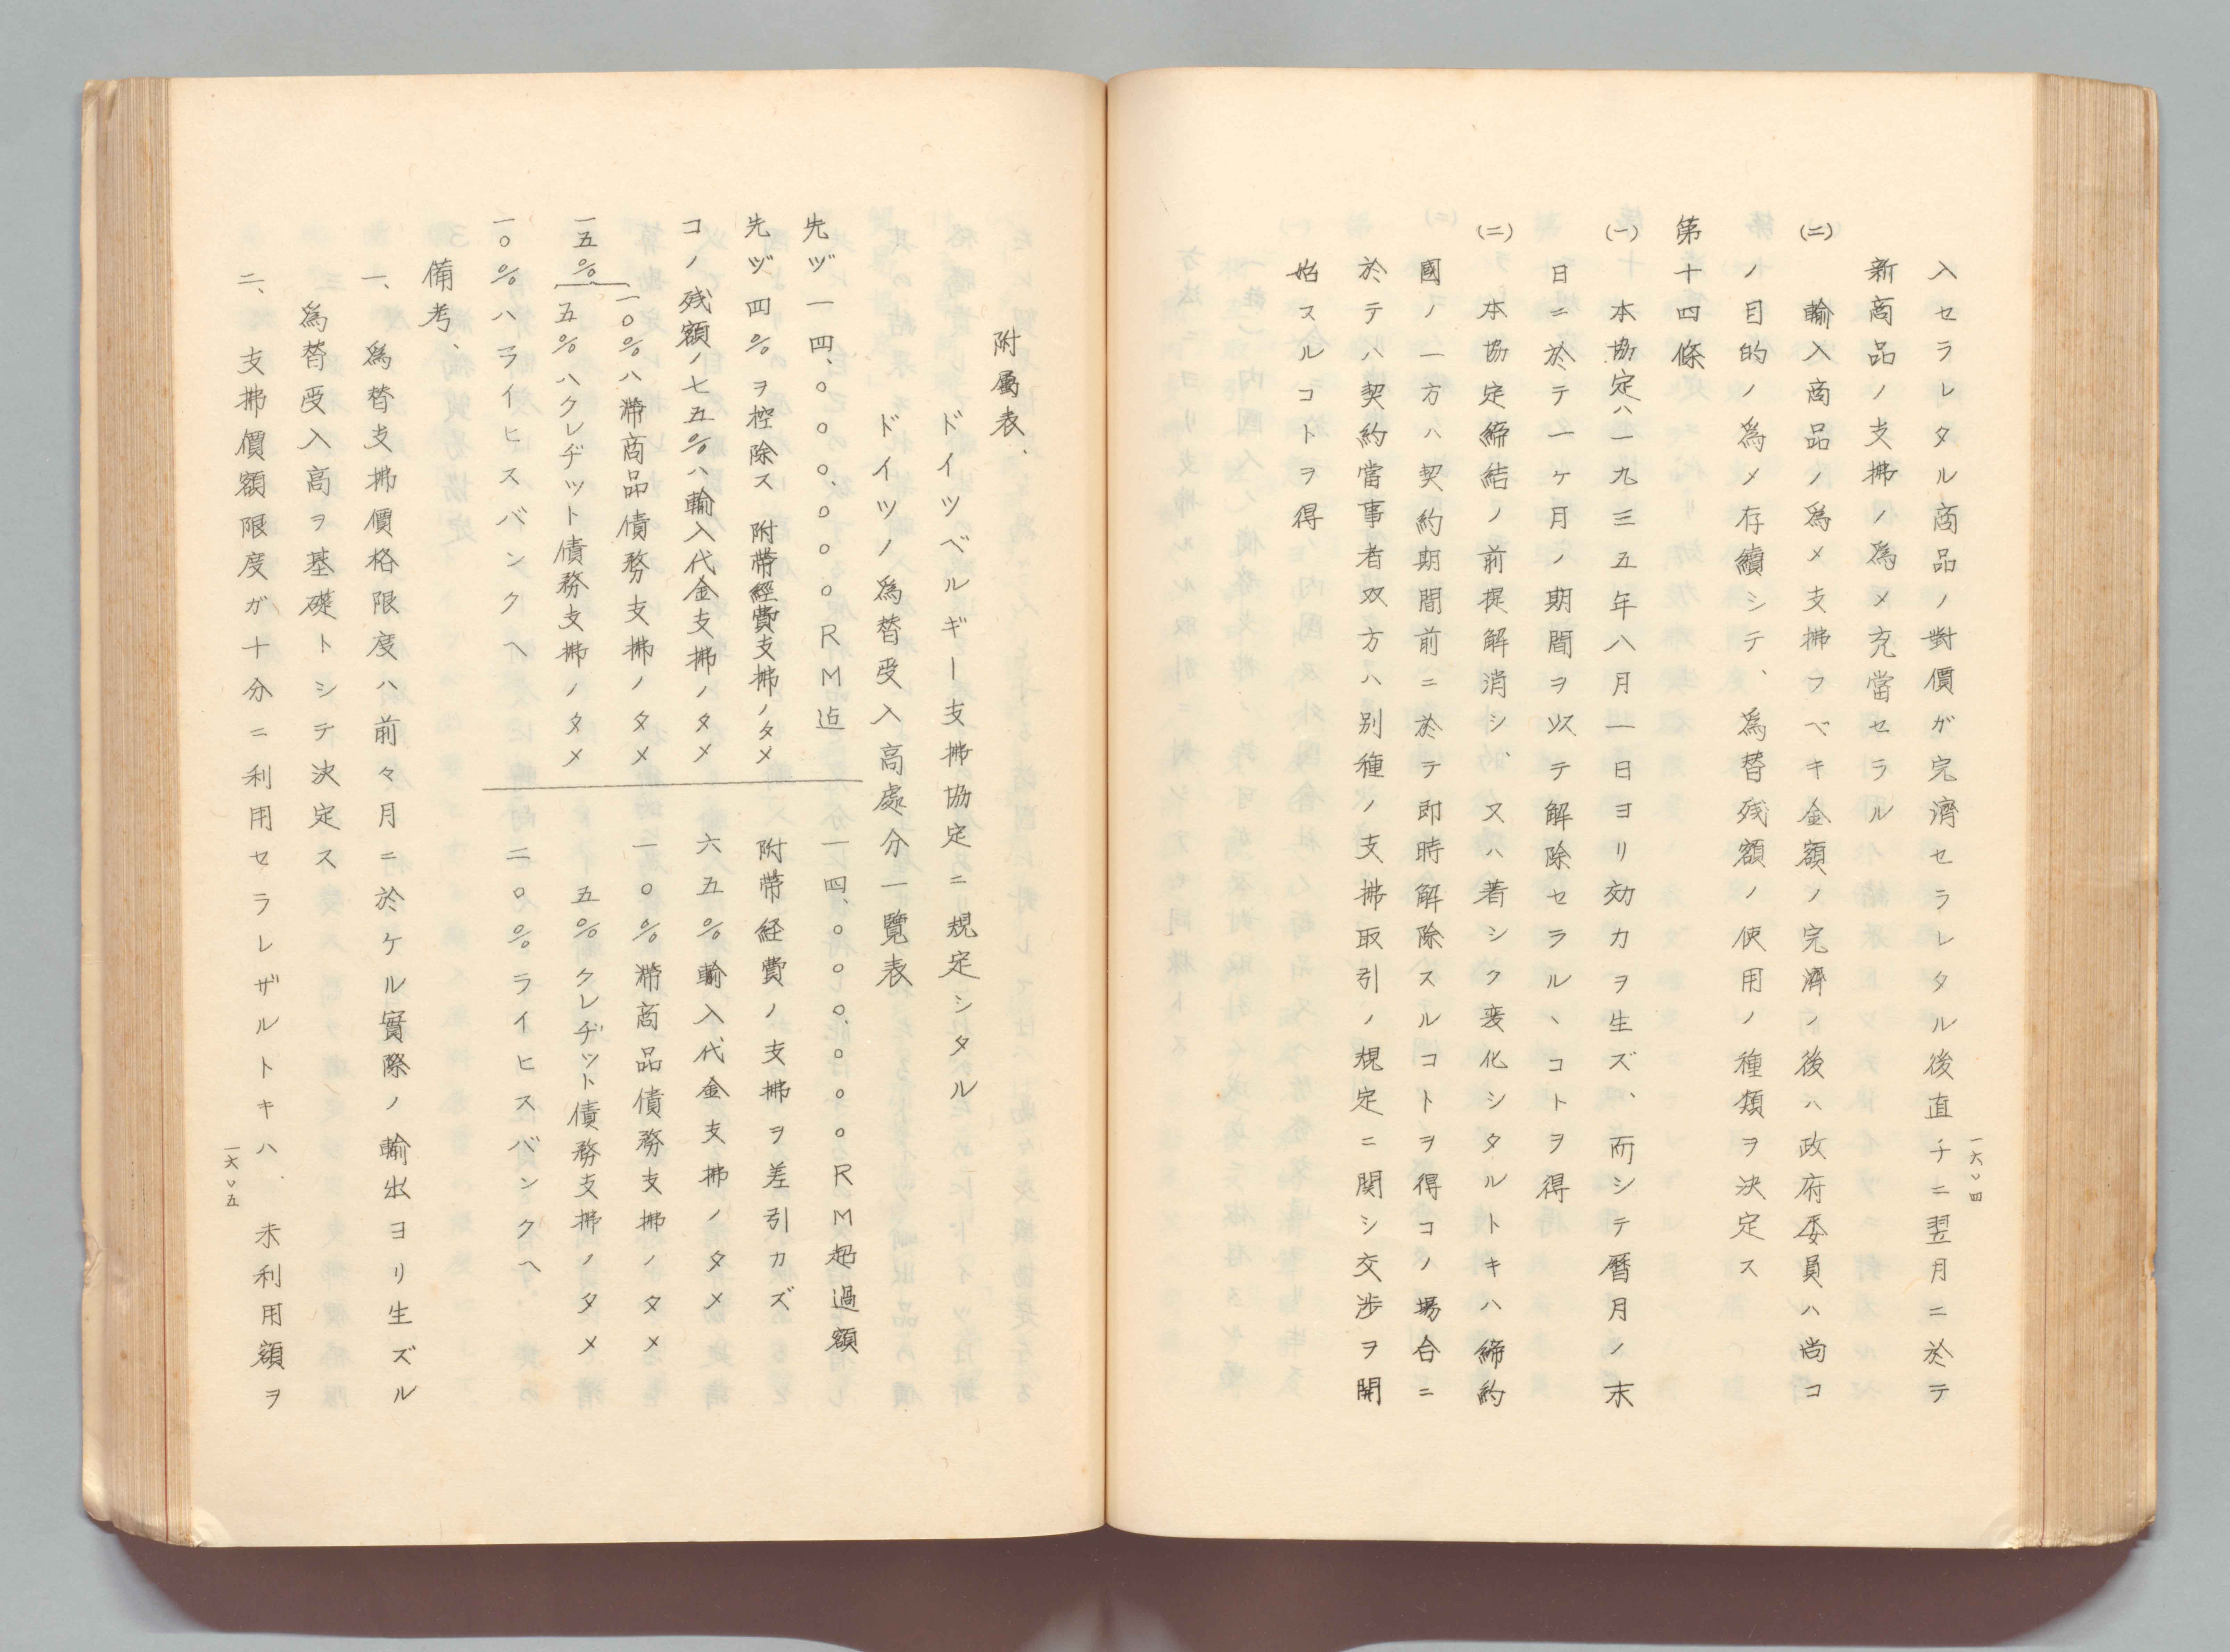 入セラレタル商品ノ對價ガ完濟セラレタル後直チニ翌月ニ於テ
新商品ノ支拂ノ爲メ充當セラル
(二) 輸入商品ノ爲メ支拂フベキ金額ノ完濟ノ後ハ政府委員ハ尚コ
ノ目的ノ爲メ存續シテ、爲替残額ノ使用ノ種類ヲ決定ス
第十四條
(一) 本協定ハ一九三五年八月一日ヨリ効力ヲ生ズ、而シテ暦月ノ末
日ニ於テ一ケ月ノ期間ヲ以テ解除セラルヽコトヲ得
(二) 本協定締結ノ前提解消シ、又ハ著シク変化シタルトキハ締約
國ノ一方ハ契約期間前ニ於テ即時解除スルコトヲ得コノ場合ニ
於テハ契約當事者双方ハ別種ノ支拂取引ノ規定ニ関シ交渉ヲ開
始スルコトヲ得
附属表、
ドイツベルギー支拂協定ニ規定シタル
ドイツノ爲替受入高處分一覽表
先ヅ一四、〇〇〇、〇〇〇RM迠
一四、〇〇〇、〇〇〇RM超過額
先ヅ四%ヲ控除ス 附帶經費支拂ノタメ
附帶経費ノ支拂ヲ差引カズ
コノ残額ノ七五%ハ輸入代金支拂ノタメ
六五%輸入代金支拂ノタメ
一五%
一〇%ハ滯商品債務支拂ノタメ
一〇%滯商品債務支拂ノタメ
五%ハクレヂット債務支拂ノタメ
五%クレヂット債務支拂ノタメ
一〇%ハライヒスバンクヘ
二〇%ライヒスバンクヘ
備考、
一、爲替支拂價格限度ハ前々月ニ於ケル實際ノ輸出ヨリ生ズル
爲替受入高ヲ基礎トシテ決定ス
二、支拂價額限度ガ十分ニ利用セラレザルトキハ、未利用額ヲ